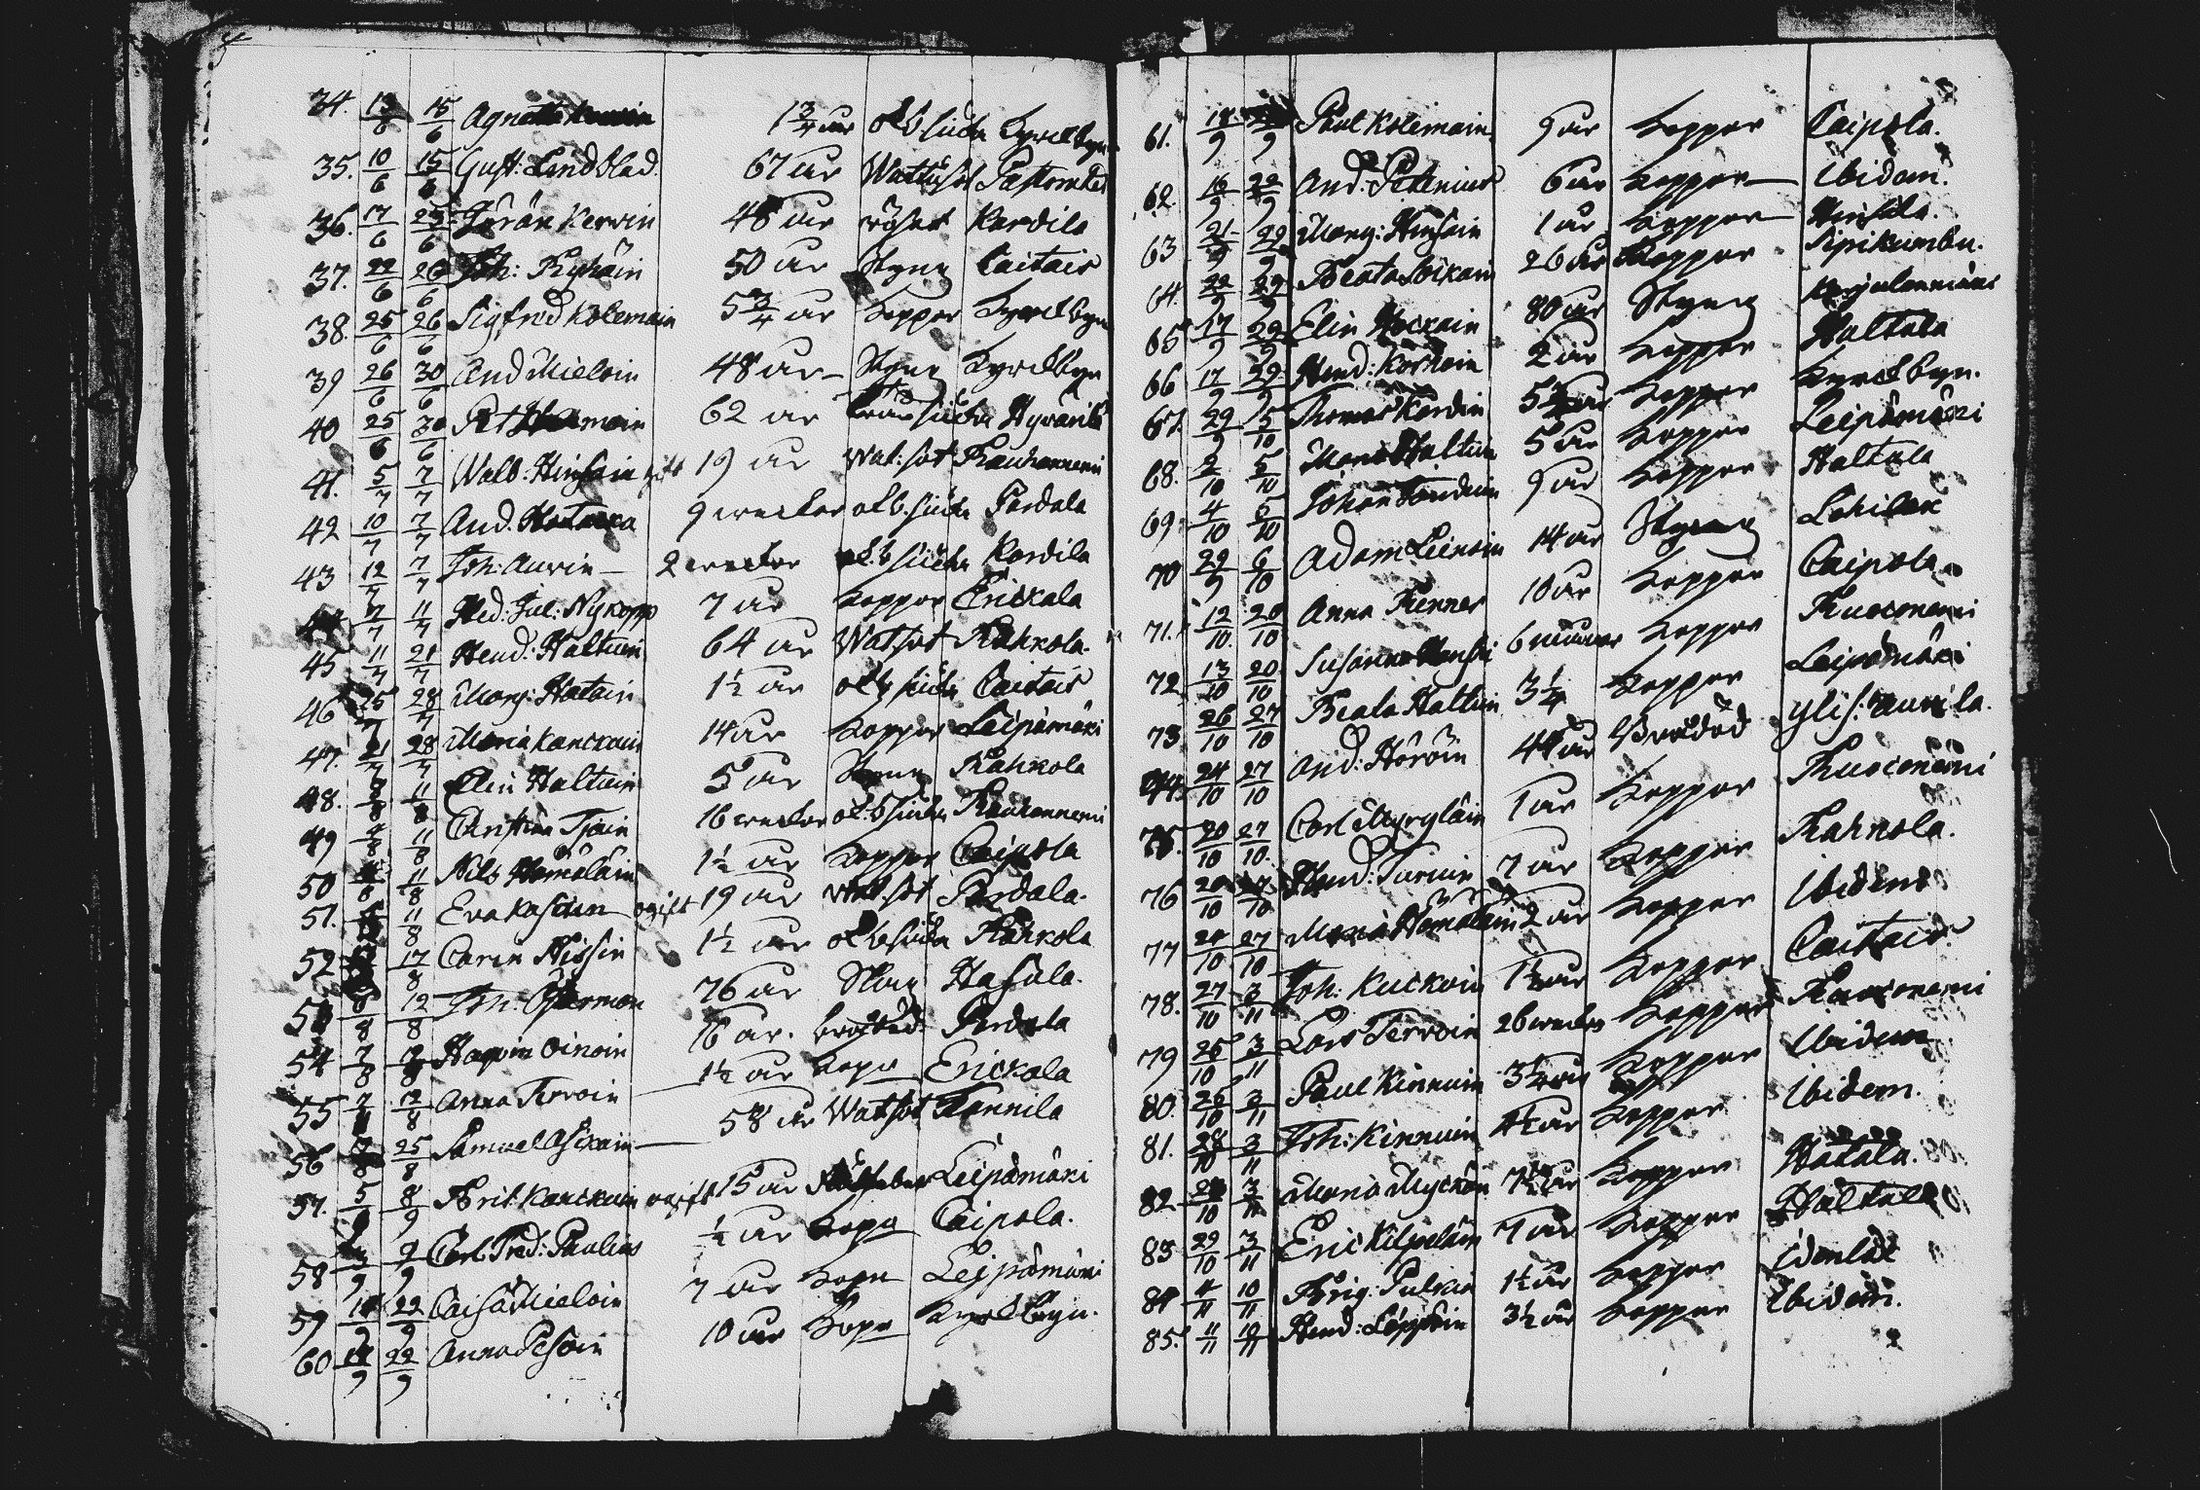 34. 13/6 15/6 Agneta 1 3/4 år obl siuka Kyrckbyn
35. 10/6 15/6 Gust: Lindblad. 67 år Wattusot Pastoratet
36. 17/6 25/6 Jöran Kervin 48 år rötsot Kardila
37. 22/6 26/6 Joh: Ryhäin 50 år Styng Caitais
38. 25/6 26/6 Sigfrid Kolemain 5 3/4 år koppor Kyrckbyn
39 26/6 30/6 And Mieloin 48 år Styng Kyrckbyn
40 25/6 30/6 Pet 62 år bråssiuka Hyvärilä
41. 5/7 7/7 Walb: Hinsain gift 19 år Wat: sot Rauhanniemi
42 10/7 7/7 And. Hatacka 9 weckor obl. siuka Pardala
43 12/7 7/7 Joh: Auvin 2 weckor obl siuka Kardila
44 7/7 11/7 Hed: Jul: Nykopp 7 år koppor Erickala
45 11/7 21/7 Hend: Haltuin 64 år Wat: sot Rahkola
46 25/7 28/7 Marg: Hatain 1 1/2 år obl siuka Caitais
47. 21/7 28/7 Maria Kanckain 14 år koppor Leipämäki
48. 8/8 11/8 Elin Haltuin 5 år Styng Rahkola
49 4/8 11/8 Christian Tjäin 16 weckor obl: siuka Rauhanniemi
50 11/8 Nils Hämäläin 1 1/2 år koppor Caipola
51. 11/8 Eva Kastin ogift 19 år Wat: sot Pardala.
52 17/8 Carin Nissin 1 1/2 år obl siuka Rahkola
53 8/8 12/8 Joh: Österman 76 år Slag Hasula.
54 7/8 Haqvin Oinoin 16 år. bråddöd Pardala
55 7/8 12/8 Anna Tervoin 1 1/2 år kopo Erickala
56 25/8 Samuel Asikain 58 år Watsot Kannila
57. 5/9 8/9 Brit Kanckain ogift 15 år Rötfeber Leipämäki
58 9/9 Carl Fred: Paulius 1/2 år kopo Caipola.
59 22/9 Caisa Mieloin 7 år kopo Leipämäki
60 22/9 Anna Pesoin 10 år kopo Kyrckbyn.
61. 14/9 Paul Kolemain 9 år koppor Caipola.
62. 16/9 22/9 And: Petenius 6 år koppor Ibidem.
63 21/9 29/9 Marg: Hinsain 1 år koppor Hinsala.
64. 22/9 29/9 Beata Asikain 26 år koppor Sipikumbu.
65 17/9 29/9 Elin Hockain 80 år Styng Karjalanniemi
66 17/9 29/9 Hend: Korhoin 2 år koppor Haltula
67. 29/9 5/10 Thomas Kardin koppor Kyrckbyn.
68. 2/10 5/10 Maria Haltuin 5 år koppor Leipämäki
69. 4/10 5/10 Johan 9 år koppor Haltula
70 29/9 6/10 Adam Leinoin 14 år Styng Lohilax
71. 12/10 20/10 Anna Renner 10 år koppor Caipola
72 13/10 20/10 Susanna 6 månar koppor Ruoconiemi
73 26/10 27/10 Beata Haltuin 3 1/4 koppor Leipämäki
74. 24/10 27/10 And: Höröin 44 år bråddöd Ylis: Auvila.
75. 20/10 27/10 Carl Myryläin 1 år koppor Ruoconiemi
76 20/10 27/10 Hend: Turuin 7 år koppor Rahkola.
77 24/10 27/10 Maria Hämäläin 2 år koppor Ibidem
78. 27/10 3/11 Joh: Kuckoin 1 1/2 år koppor Caitais.
79 25/10 3/11 Lars Tervoin 26 weckor koppor Ruoconiemi
80. 26/10 3/11 Paul Kinnuin 3 1/4 år koppor Ibidem
81. 28/10 3/11 Joh: Kinnuin 4 1/2 år koppor Ibidem.
82. 28/10 3/11 Maria Myckäin 7 1/2 år koppor Hatala.
83 29/10 3/11 Eric Kilpeläin 7 år koppor Haltula
84 4/11 10/11 Brig: Pulkin 1 1/2 år koppor Idenlax
85. 11/11 Hend: Leppäin 3 1/2 år koppor Ibidem.